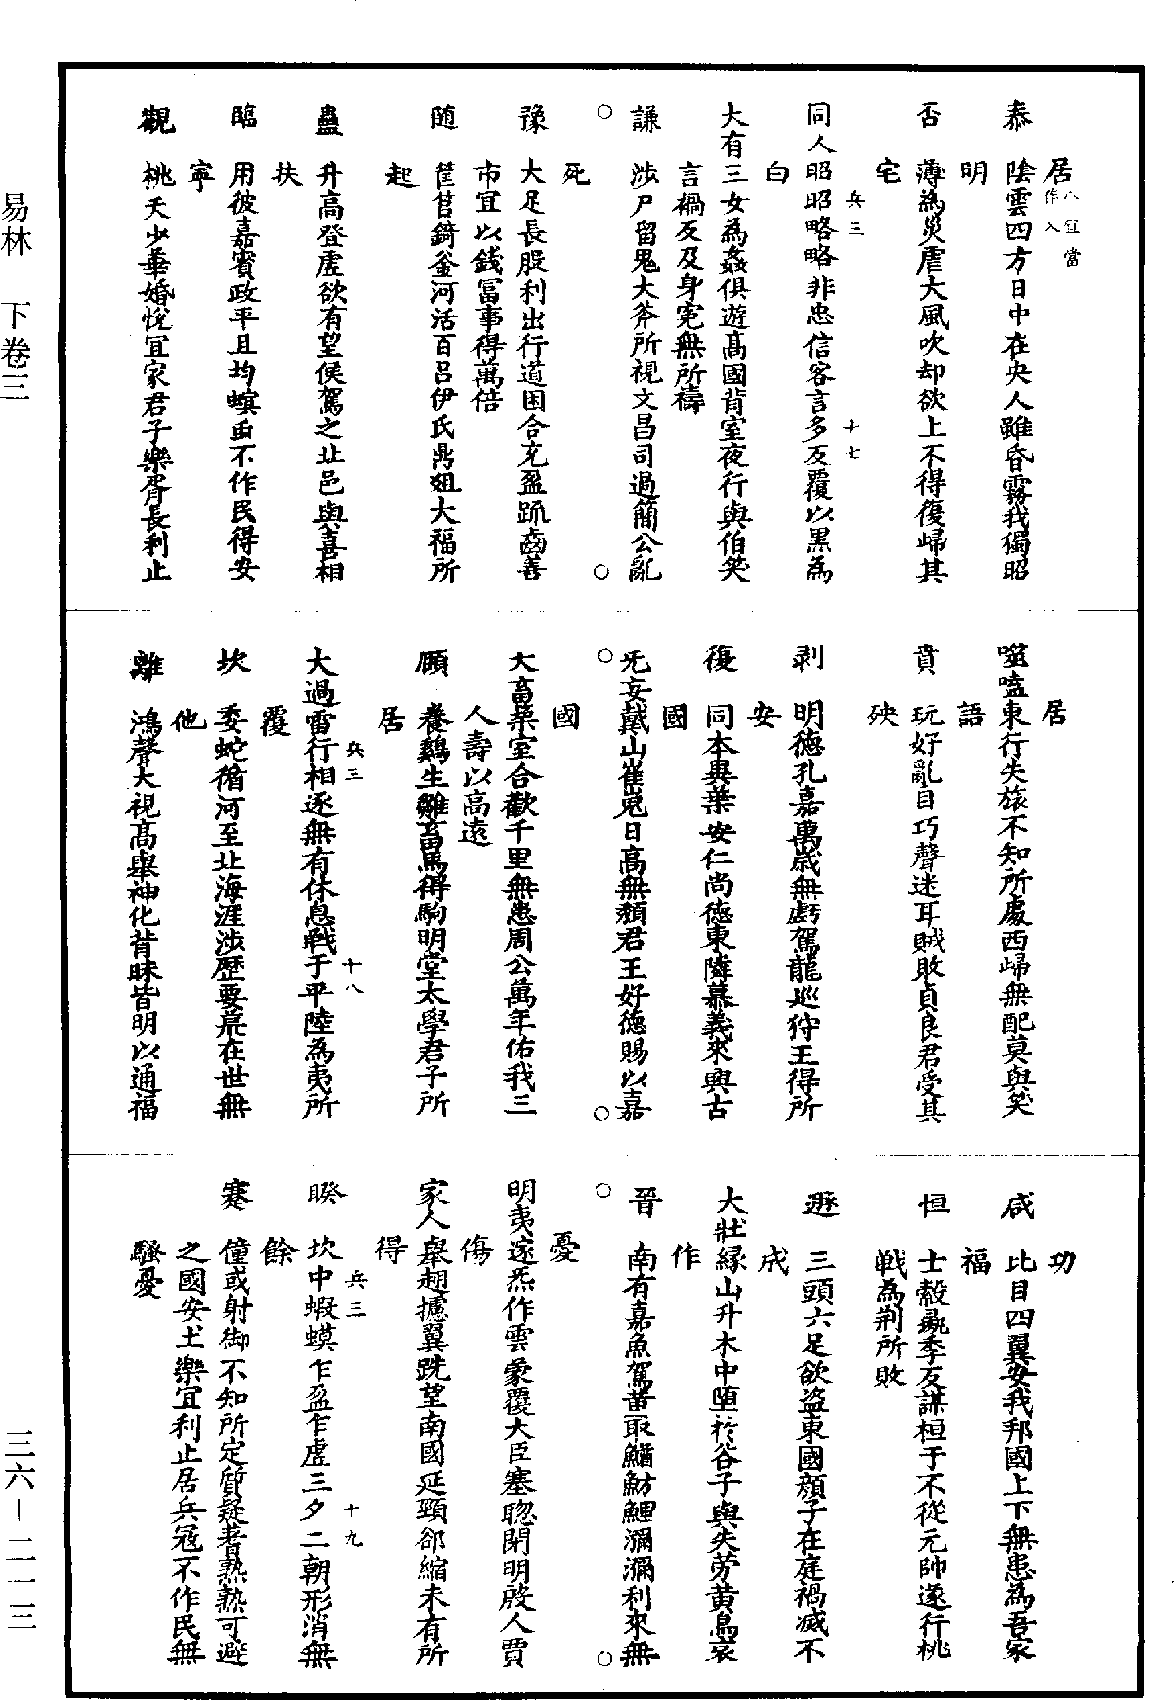 居八宜當作入
泰　陰雲四方日中在央人雖昏霧我獨昭
明
否　薄為災虐大風吹却欲上不得復歸其
宅
兵三　十七
同人昭昭略略非忠信客言多反覆以黑為
白
大有三女為姦俱遊高國背室夜行與伯笑
言禍反及身冤無所禱
謙　涉尸留鬼大斧所視文昌司過簡公亂
○　○
死
豫　大足長股利出行道困合充盈疏齒善
市宜以錢富事得萬倍
随　筐筥錡釜河活百呂伊氏鼎俎大福所
起
蠱　升高登虛欲有望侯駕之北邑與喜相
扶
臨　用彼嘉賓政平且均螟虫不作民得安
寧
觀　桃夭少華婚悅宜家君子樂胥長利止
居
噬嗑東行失旅不知所處西歸無配莫與笑
語
賁　玩好亂目巧聲迷耳賊敗貞良君受其
殃
剥　明德孔嘉萬歲無虧駕龍巡狩王得所
安
復　同本異葉安仁尚德東隣慕義來興古
國
无妄戴山崔嵬日高無頹君王好德賜以嘉
○　○
國
大畜葉室合歡千里無患周公萬年佑我三
人壽以高遠
頤　養鷄生雛畜馬得駒明堂太學君子所
居
兵三　十八
大過雷行相逐無有休息戰于平陸為夷所
覆
坎　委蛇循河至北海涯涉歷要荒在世無
他
離　鴻聲大視高舉神化背昧皆明以通福
功
咸　比目四翼安我邦國上下無患為吾家
福
恒　士殺彘季反謀桓于不從元帥遂行挑
戰為荆所敗
遯　三頭六足欲盜東國顏子在庭禍滅不
成
大壯緣山升木中墮於谷子與失勞黄鳥哀
作
晉　南有嘉魚駕黃取鰌魴鯉瀰瀰利來無
○　○
憂
明夷遂炁作雲蒙覆大臣塞聰閉明殷人賈
傷
家人舉翅攄翼跣望南國延頸卻縮未有所
得
兵三　十九
睽　坎中蝦蟆乍盈乍虛三夕二朝形消無
餘
蹇　僮或射御不知所定質疑蓍熟熱可避
之國安土樂宜利止居兵冦不作民無
騷憂
易林　下卷三
三六—二一三